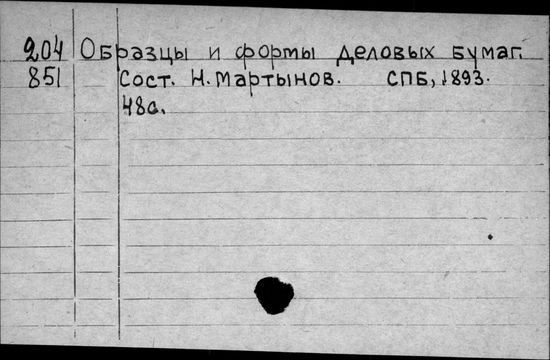 204 Образцы и форты деловых бумаг.
851 Сост. Н. Мартынов. СПБ, 1893.
48с.